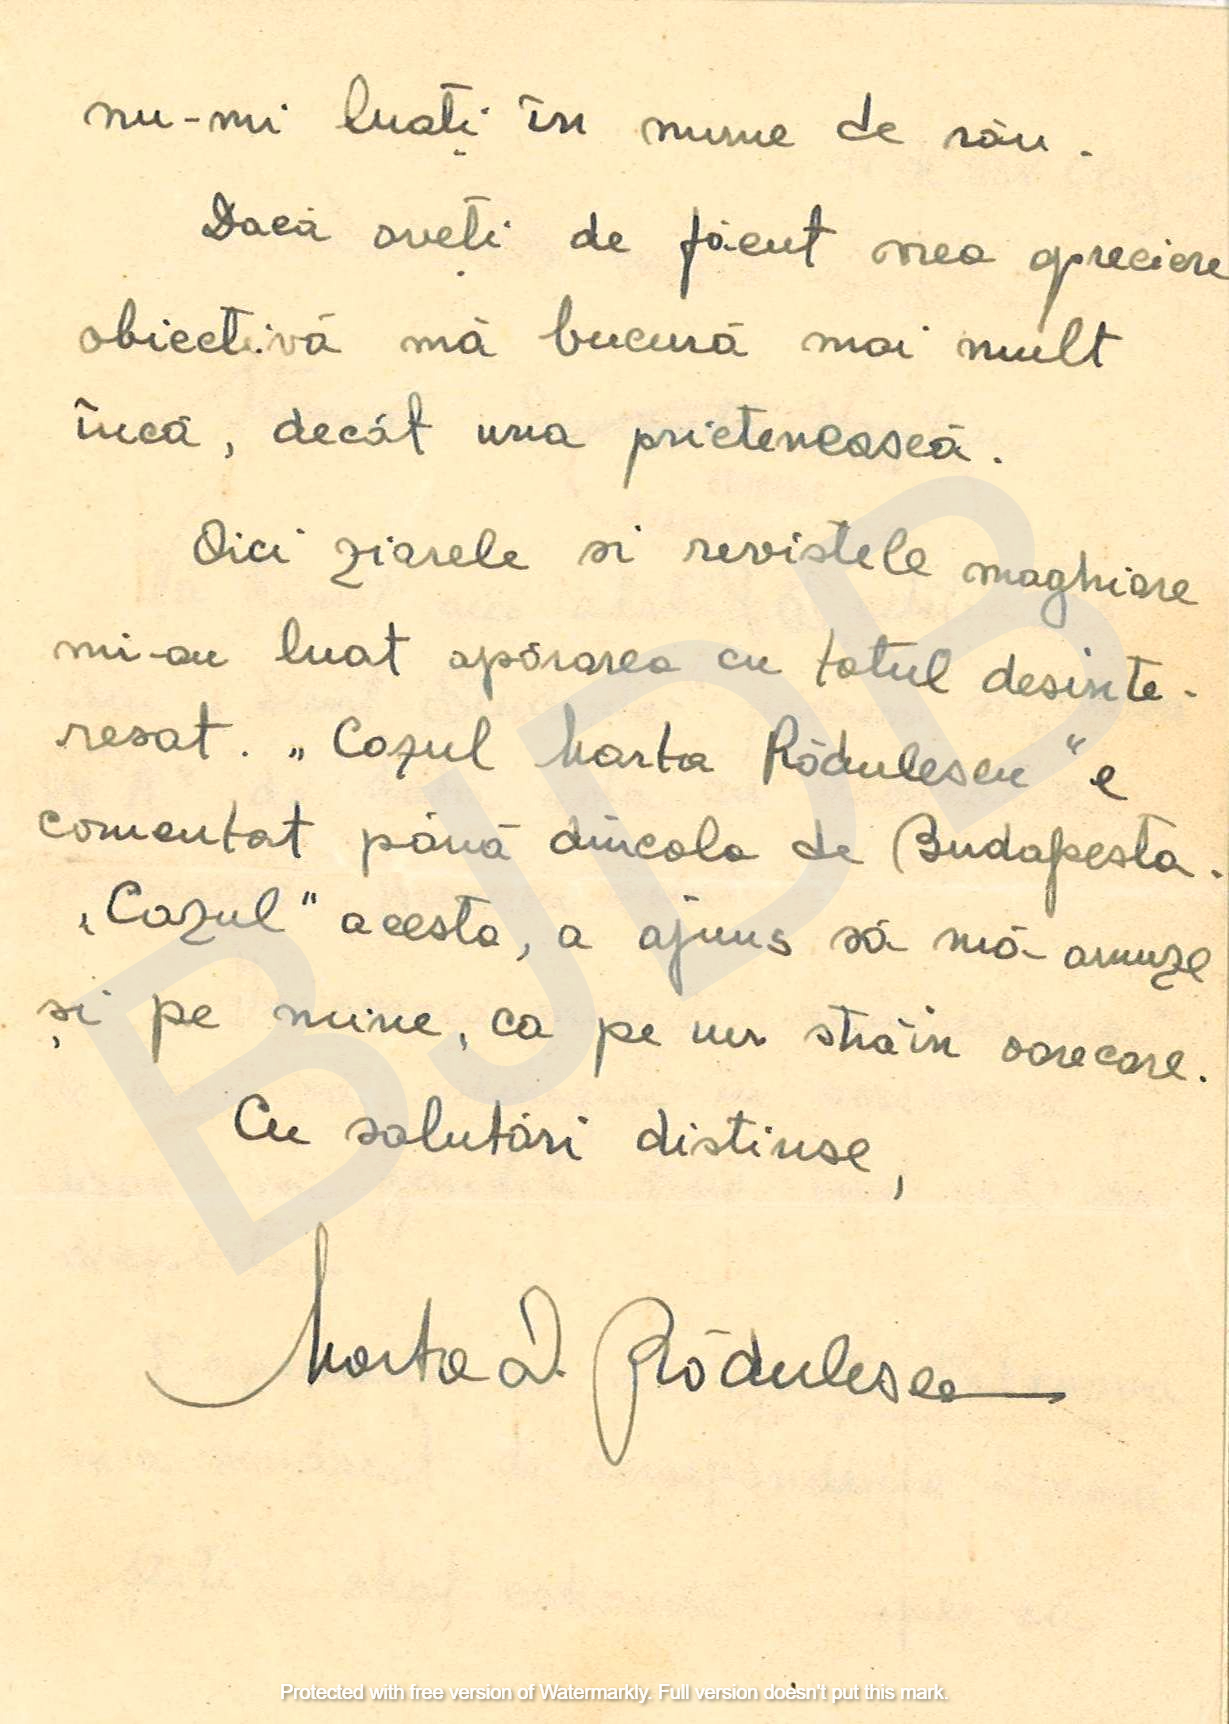 nu-mi luați în nume de rău.
Dacă aveți de făcut vrea apreciere
obiectivă mă bucură mai mult
încă, decât una prietenească.
Aici ziarele si revistele maghiare
mi-au luat apărarea cu totul desinte-
resat. „Cazul Marta Rădulescu“ e
comentat până dincolo de Budapesta.
„Cazul" acesta, a ajuns să mă amuze
și pe mine, ca pe un străin oarecare.
Cu salutări distinse,
Marta D. Rădulescu
BJDB
Protected with free version of Watermarkly. Full version doesn't put this mark.